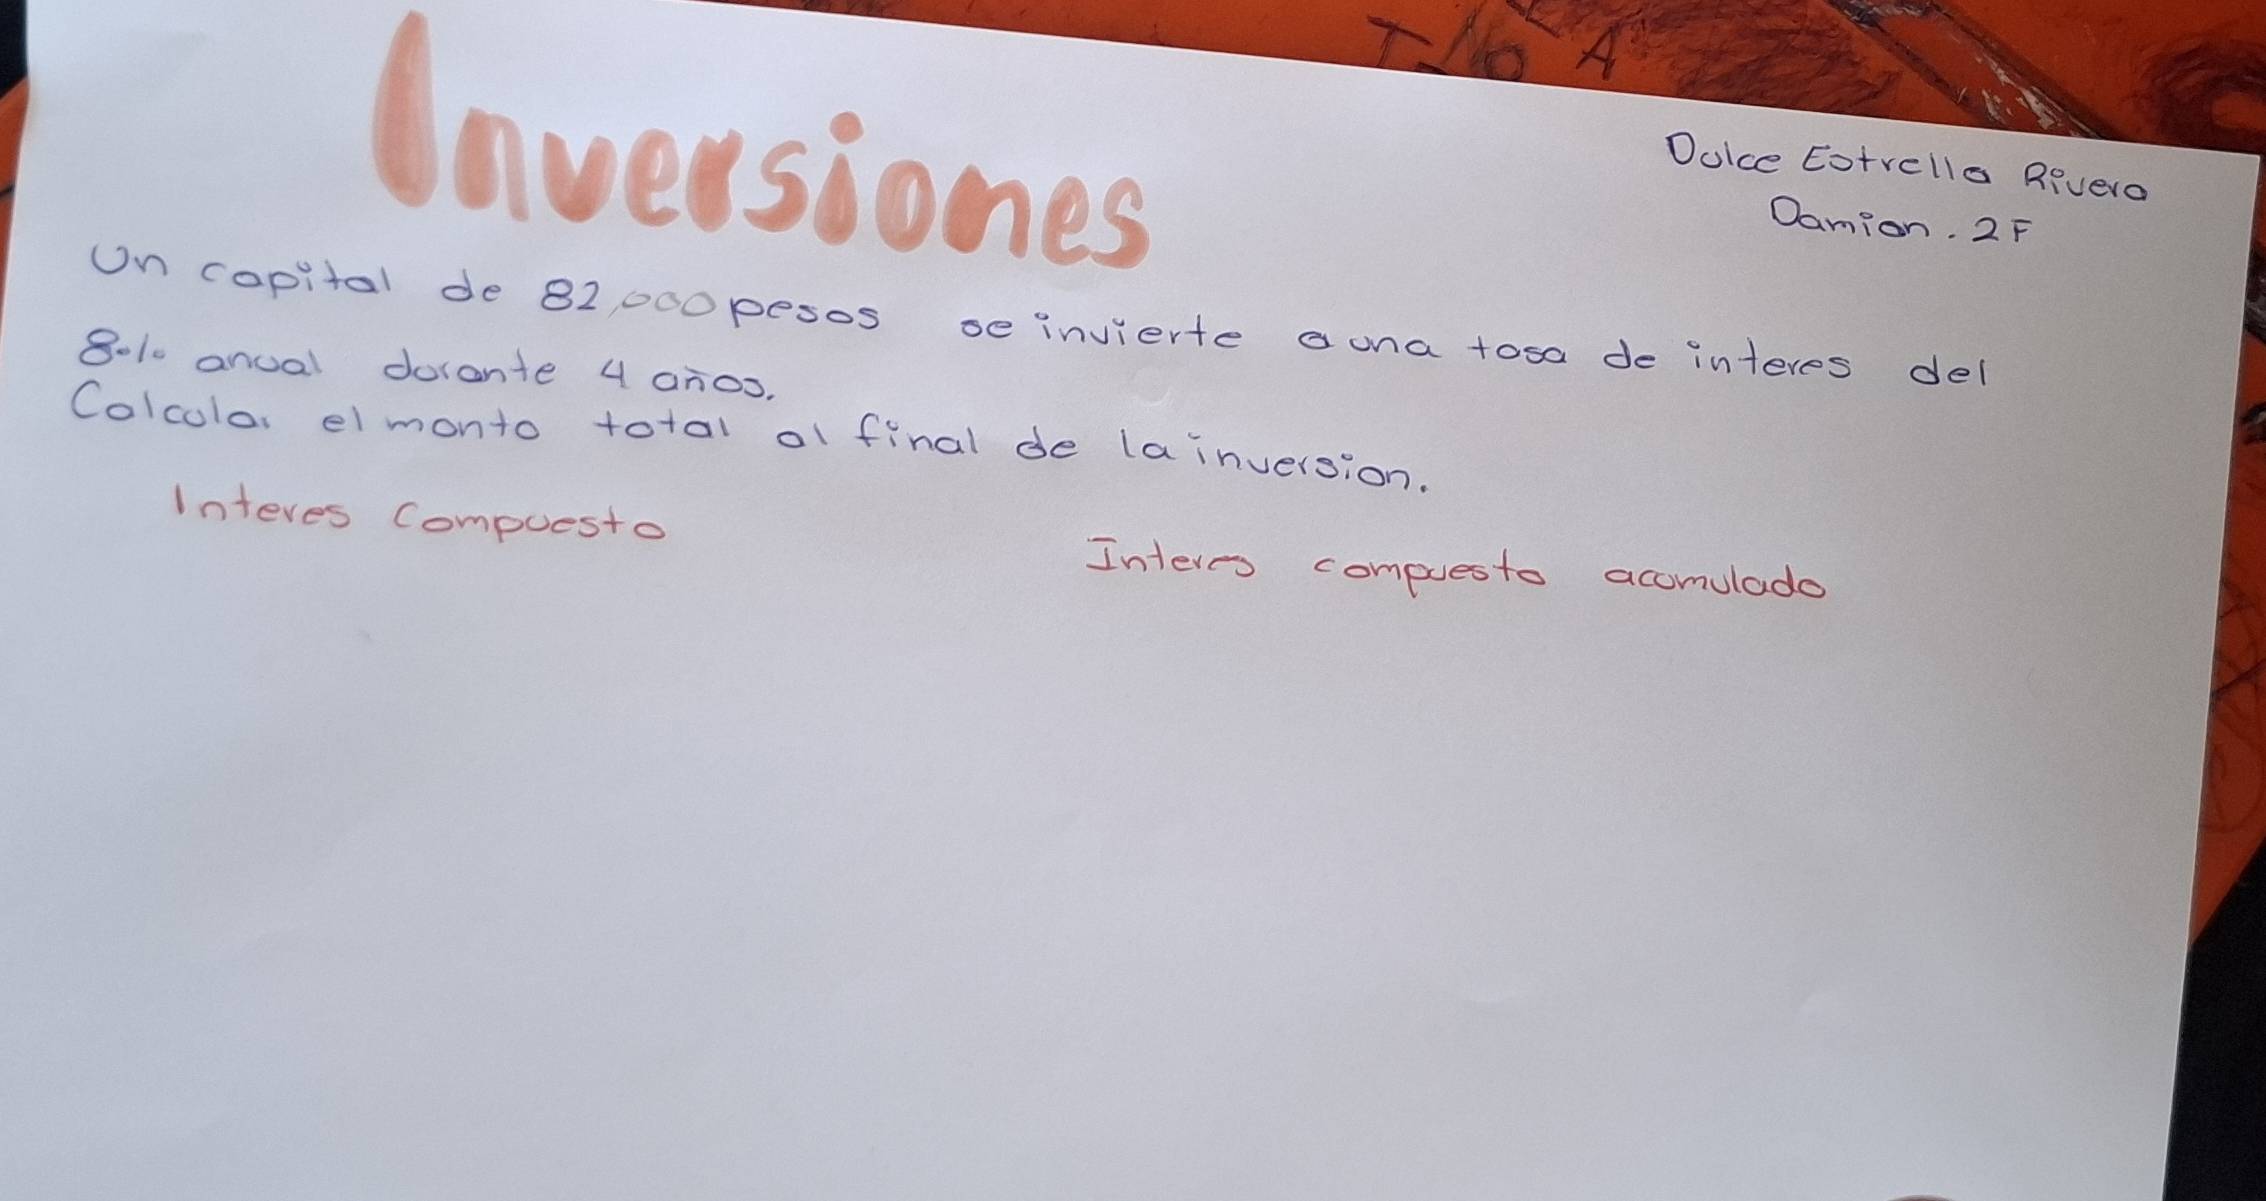 Inversiones
Dulce Estrella Rivera
Damian. 2F
Un capital de 82,000 pesos se invierte a una tasa de interes del
8% anual durante 4 años.
Calcular el monto total al final de la inversion.
Interes Compuesto
Interes compuesto acomulado